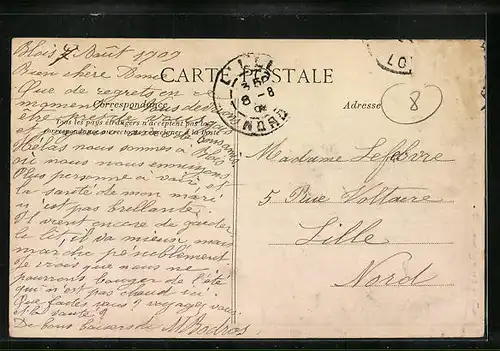 Blois 7 Août 1909
Bien chère Dame
CARTE POSTALE
Que de regrets en ce
moment nous
Correspondance
Adresse
8
Tous les pays étrangers n'acceptent pas la
correspondance au recto
à la poste
Hélas nous sommes à Blois
où nous nous ennuyons
Plus personne à voir, et
la santé de mon mari
n'est pas brillante.
Il vient encore de garder
le lit, il va mieux mais
marche péniblement
Je crois que nous ne
pourrons bouger de l'été
qui n'est pas chaud ici.
Que faites vous ? voyagez vous
et la santé ?
De bons baisers de M
LILLE
NORD
8 -8
LO
Madame Lefebvre
5 Rue Voltaire
Lille
Nord